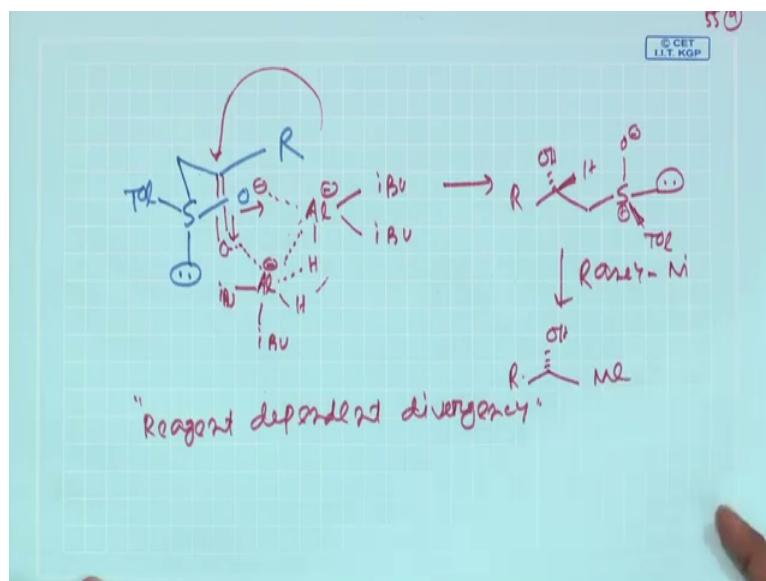 55 9
© CET
I.I.T. KGP
R
Tol
S
O⊖
O
Al⊖
iBu
iBu
H
Al⊖
iBu
H
iBu
OH
H
R
O⊖
S⊕
Tol
Raney-Ni
OH
R
Me
"Reagent dependent divergency"